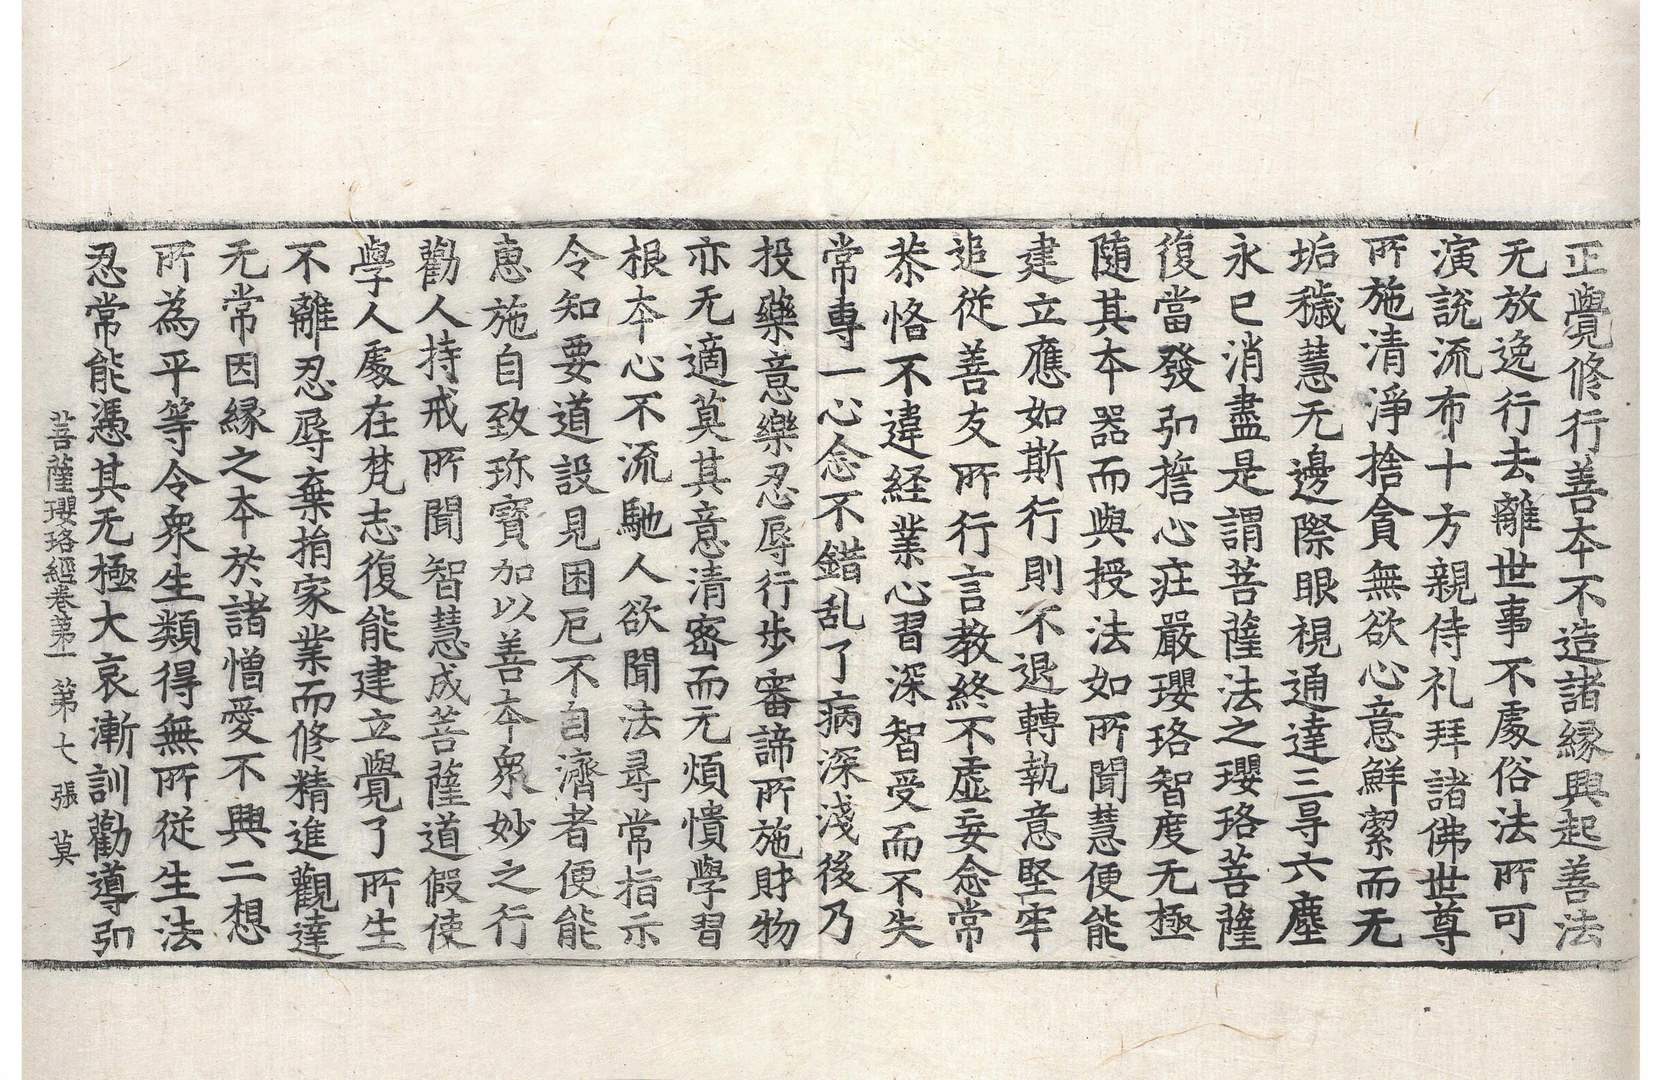 正覺修行善本不造諸縁興起善法
无放逸行去離世事不處俗法所可
演說流布十方親侍礼拜諸佛世尊
所施清淨捨貪無欲心意鮮潔而无
垢穢慧无邊際眼視通達三㝵六塵
永已消盡是謂菩薩法之瓔珞菩薩
復當發弘誓心莊嚴瓔珞智度无極
隨其本器而與授法如所聞慧便能
建立應如斯行則不退轉執意堅牢
追従善友所行言教終不虛妄念常
恭恪不違経業心習深智受而不失
常專一心念不錯乱了病深淺後乃
投藥意樂忍辱行步審諦所施財物
亦无適莫其意清密而无煩憒學習
根本心不流馳人欲聞法尋常指示
令知要道設見困厄不自濟者便能
惠施自致珎寶加以善本衆妙之行
勸人持戒所聞智慧成菩薩道假使
學人處在梵志復能建立覺了所生
不離忍辱棄捐家業而修精進觀達
无常因縁之本於諸憎愛不興二想
所為平等令衆生類得無所従生法
忍常能憑其无極大哀漸訓勸導弘
菩薩瓔珞經卷第一 第七張 莫